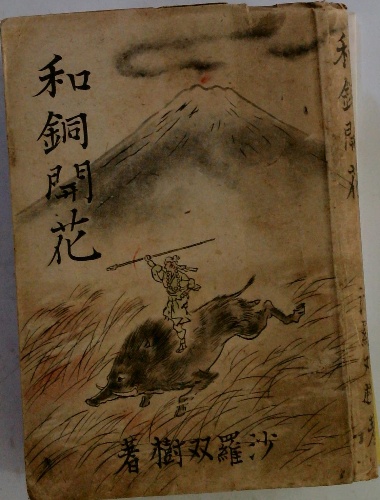 和銅開花
沙羅双樹著
和銅開花